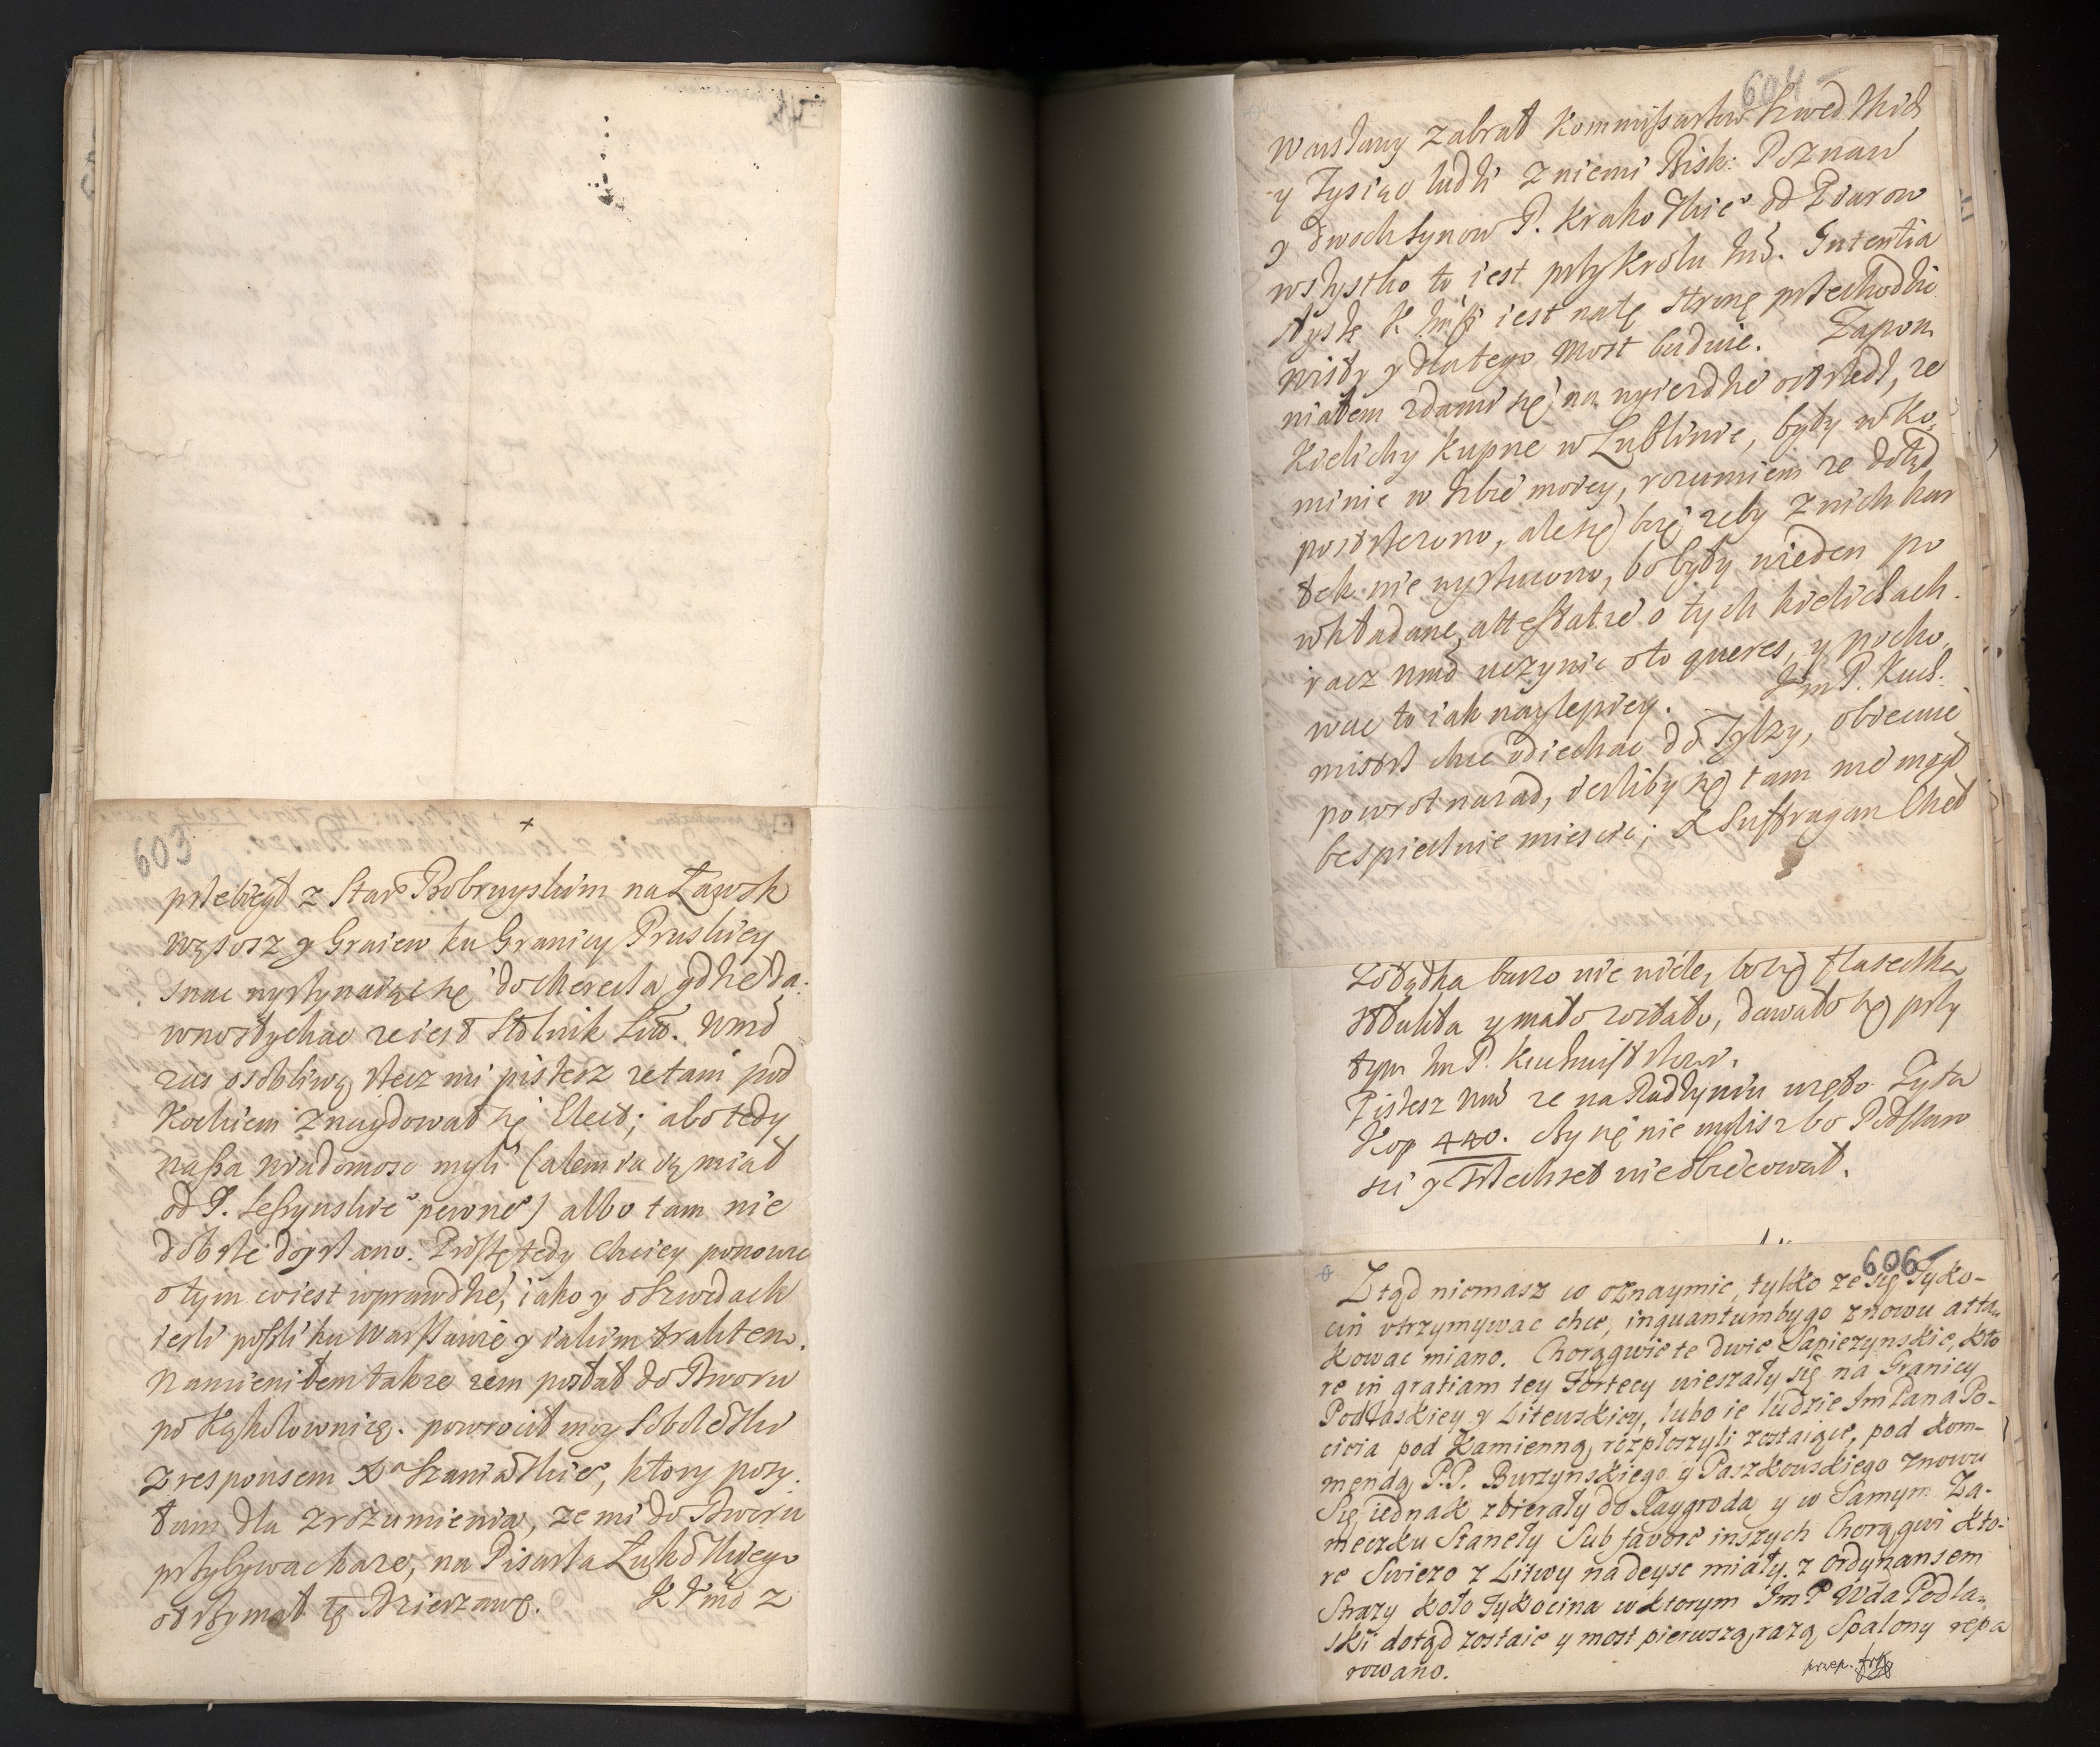 603
przebiegł z Star Bobruyskim na Ławsk
Wąsosz y Graiew ku Granicy Pruskiey
snac wyrzynaiąc się do Merecza gdzie da
wno słychac ze iest Stolnik Lit. Wmć
zas osobliwą rzecz mi piszesz ze tam pod
Kockiem znaydował się Elect; abo tedy
nasza wiadomosc myli (alem ia ią miał
od P. pewne) albo tam nie
dobrze doyrzano. Proszę tedy chciey ponowic
o tym co iest wprawdzie, iako y o Szwedach
iesli poszli ku Warszawie y iakim traktem.
Namieniłem takze zem posłał do Dworu
po Kąkolownicę. powrocił moy
z responsem Xa Szaniawskie, ktory posy
łam dla zrozumienia, ze mi do Dworu
przybywac kaze, na Pisarza Łukowskiego
otrzymał tę Dzierzawę. K Jmć z
604
Warszawy zabrał Kommissarzow Szwedzkich
y Tysiąc ludzi z niemi Bisk: Poznan
y dwoch synow P. Krakowskie od Piarow
wszystko to iest przy Krolu Jmć. Intentia
słyszę K Jmści iest na tę stronę przechodzic
Wisły y dlatego most buduie. Zapom
niałem zdami się na wyiezdzie ostrzedz, ze
Kielichy kupne w Lublinie, były w Ko,
minie w Izbie moiey, rozumiem ze dotąd
postrzezono, ale się boię zeby z nich kar
tek nie wyrzucono, bo były w ieden po
wkładane, attestatie o tych kielichach.
racz Wmć uczynic o to queres, y pocho,
wac to iak naylepiey. Jm P. Kuch.
mistrz chce odiechac do Tylzy, obiecuie
powrot nazad, iesliby się tam nie mogł
bespiecznie miescic; X Suffragan Cheł
Zołądka barzo nic nie wiele, bo się flaszeczka
stłukła y mało zostało, dawało się przy
tym Jm P. Kuchmistrzow.
Piszesz Wmć ze na Radzyniu uręto Zyta
Kop 440. czy się nie mylisz bo Podstaro
sci y Trzechset nie obiecował.
606
Ztąd niemasz co oznaymic, tylko ze się Tyko-
cin utrzymywac chce, inquantum by go znowu atta
kowac miano. Chorągwie te dwie Sapiezynskie, kto
re in gratiam tey Fortecy wieszały się na Granicy
Podlaskiey y Litewskiey, lubo ie ludzie Im Pana Po-
cieia pod Kamienną rozpłoszyli zostaiące, pod Kom-
mendą P.P. Burzynskiego y Paszkowskiego znowu
Się iednak zbierały do Raygroda y w Samym Za-
meczku Stanęły Sub favore inszych Chorągwi kto-
re Swiezo z Litwy nadeysc miały. z Ordynansem
Strazy koło Tykocina w ktorym Im P Wda Podla-
ski dotąd zostaie y most pierwszą razą Spalony repa
rowano.
przep.